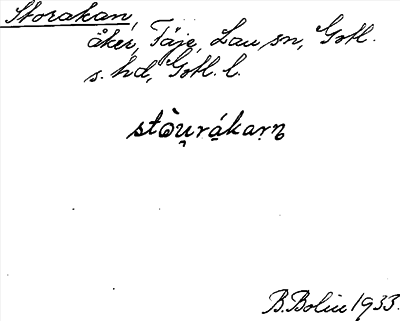 Storakan,
åker, Täje, Lau sn, Gotl.
s. hd, Gotl. l.
stòu̯rákarn
B. Bolin 1933.